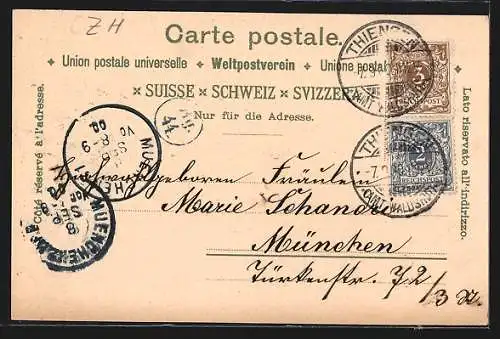 ZH
Carte postale.
Union postale universelle + Weltpostverein + Unione postale
× SUISSE × SCHWEIZ × SVIZZERA
Nur für die Adresse.
Côté réservé à l'adresse.
Lato riservato all'indirizzo.
THIENGEN
(AMT WALDSHUT)
3
REICHSPOST
THIENGEN
7.9
(AMT WALDSHUT)
2
REICHSPOST
44
MUENCHEN
SEP
8-9
MUENCHEN
8
SEP
VOR
Hochwohlgeboren Fräulein
Marie Schander
München
Türkenstr. 72/3